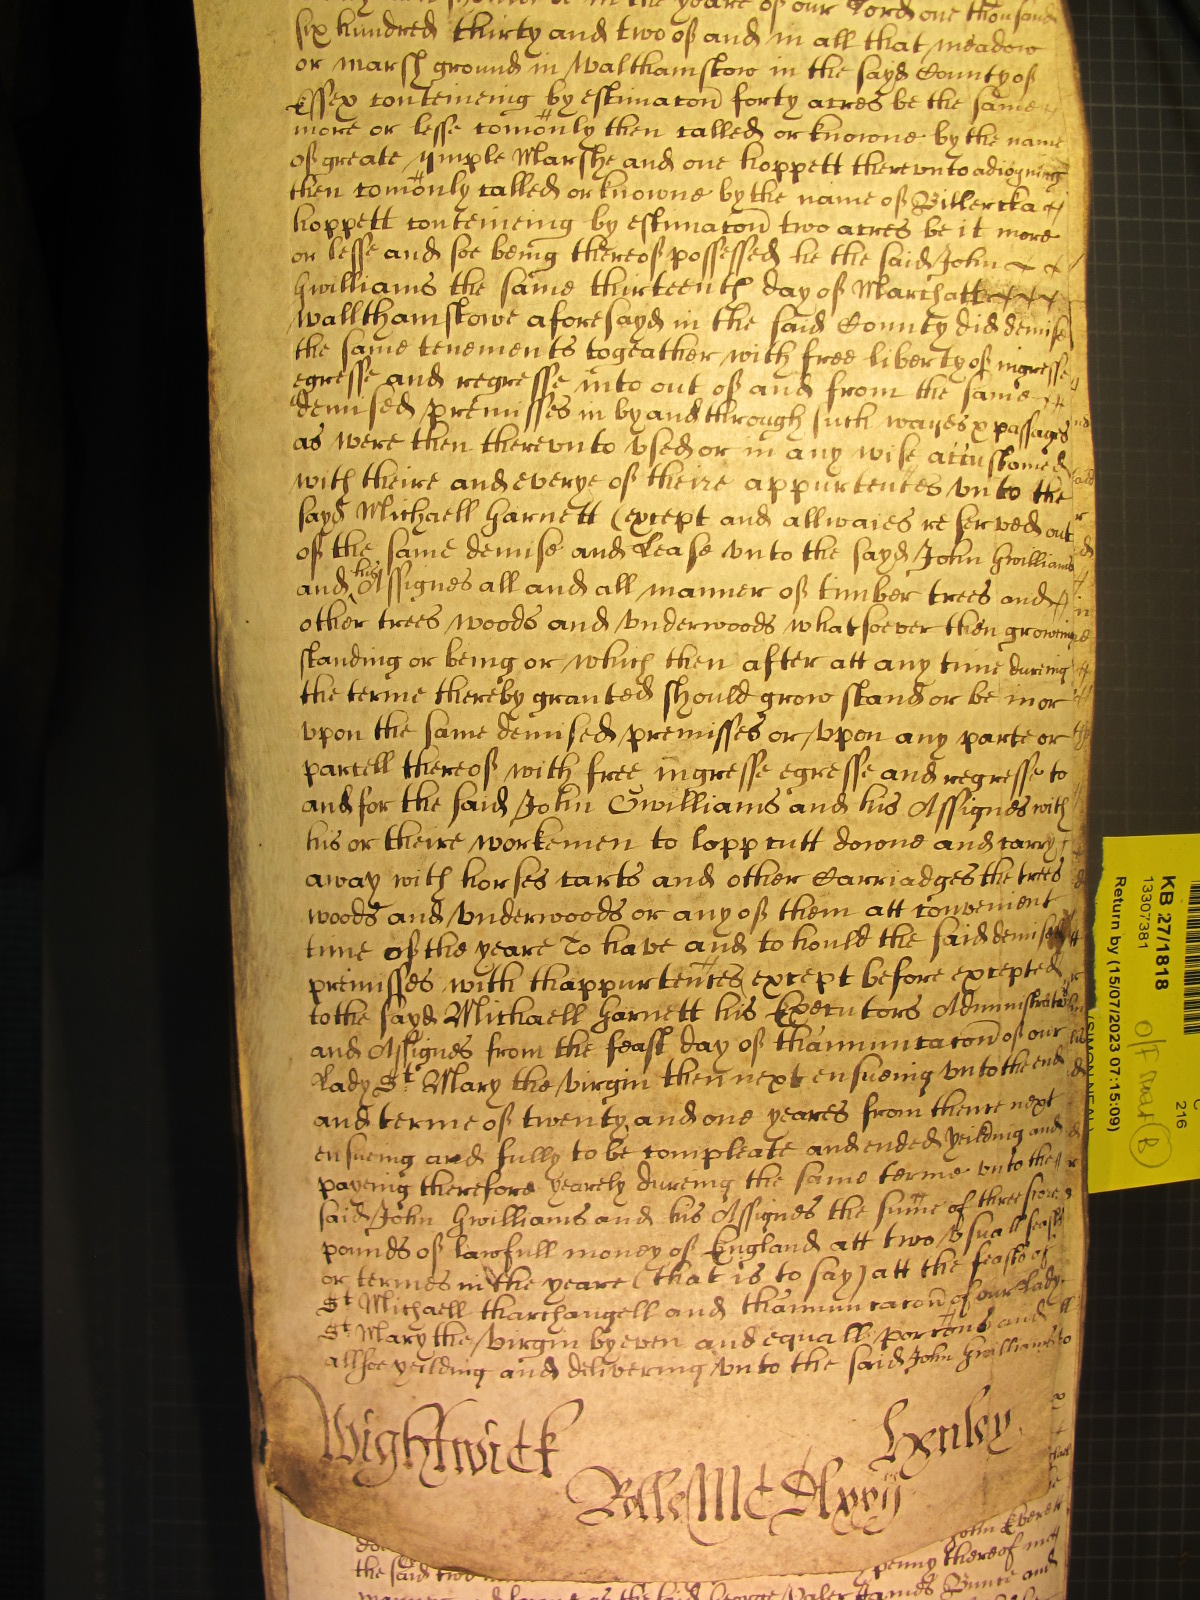 in the yeare of our Lord one thousand
six hundred thirty and two of and in all that meadow
or marsh ground in Walthamstow in the sayd County of
Essex conteineing by estimacon forty acres be the same
more or lesse comonly then called or knowne by the name
of greate ymple Marshe and one hoppett therevnto adioyning
then comonly called or knowne by the name of Billercka
hoppett conteineing by estimacon two acres be it more
or lesse and soe being thereof possessed he the said John
Gwilliams the same thirteenth day of March att
Wallthamstowe aforesayd in the said County did demise
the same tenements togeather with free liberty of ingresse
egresse and regresse into out of and from the same
demised premisses in by and through such wayes & passages
as were then therevnto vsed or in any wise accustomed
with theire and everye of theire appurtences vnto the
sayd Michaell Garnett (except and allwaies reserved out
of the same demise and Lease vnto the sayd John Gwilliams
and his Assignes all and all manner of timber trees and
other trees woods and vnderwoods whatsoever then growing
standing or being or which then after att any time dureing
the terme thereby granted should grow stand or be in or
vpon the same demised premisses or vpon any parte or
parcell thereof with free ingresse egresse and regresse to
and for the said John Gwilliams and his Assignes with
his or theire workemen to lopp cutt downe and carry
away with horses carts and other Carriadges the trees
woods and vnderwoods or any of them att convenient
time of the yeare To have and to hould the said demised
premisses with thappurtences except before excepted
to the sayd Michaell Garnett his Executors Administrators
and Assignes from the feast day of thannunciacon of our
Lady St Mary the virgin then next ensueing vnto the end
and terme of twenty and one yeares from thence next
ensueing and fully to be compleate and ended yeilding and
payeing therefore yearely dureing the same terme vnto the
said John Gwilliams and his Assignes the sume of three score
pounds of lawfull money of England att two vsuall feasts
or termes in the yeare (that is to say) att the feasts of
St Michaell tharchangell and thannuncacon of our Lady
St Mary the virgin by even and equall porcons and
allsoe yeilding and delivering vnto the said John Gwilliams to
Wightwick
Henley
Rolle MCDlxxij
John Everett
the said two
penny thereof
the said George James Bunce and
KB 27/1818
13307381
Return by (15/07/2023 07:15:09)
216
(SIMON NEAL)